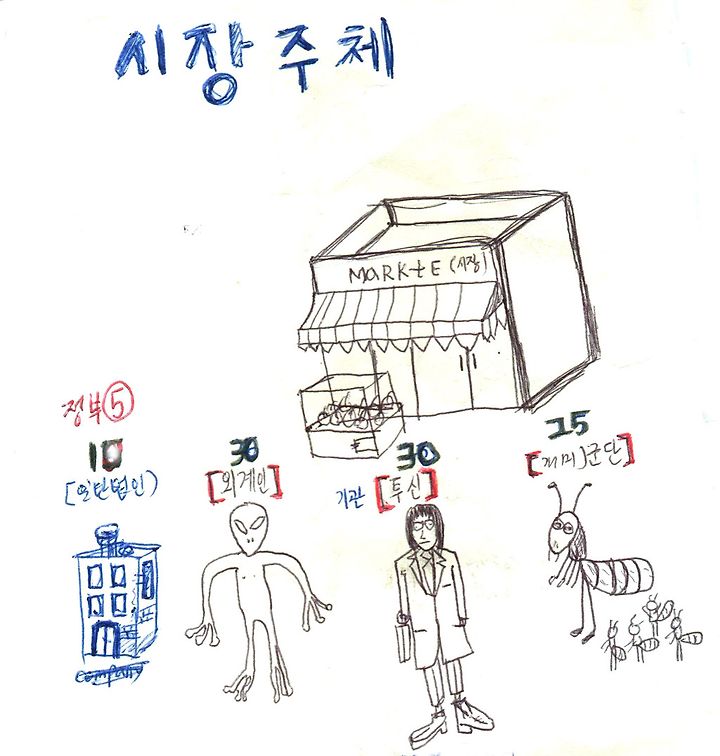 시장주체
MARKtE (시장)
정부 ⑤
10 30 30 25
[일반법인) [외계인] 기관 [투신] [개미군단]
company